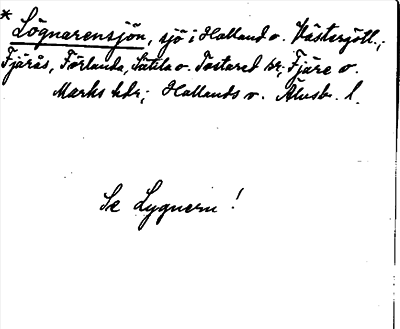 * Lögnarensjön, sjö i Halland o. Västergötl.,
Fjärås, Förlanda, Sätila o. Tostared snr; Fjäre o.
Marks hdr; Hallands o. Älvsb. l.
Se Lygnern!